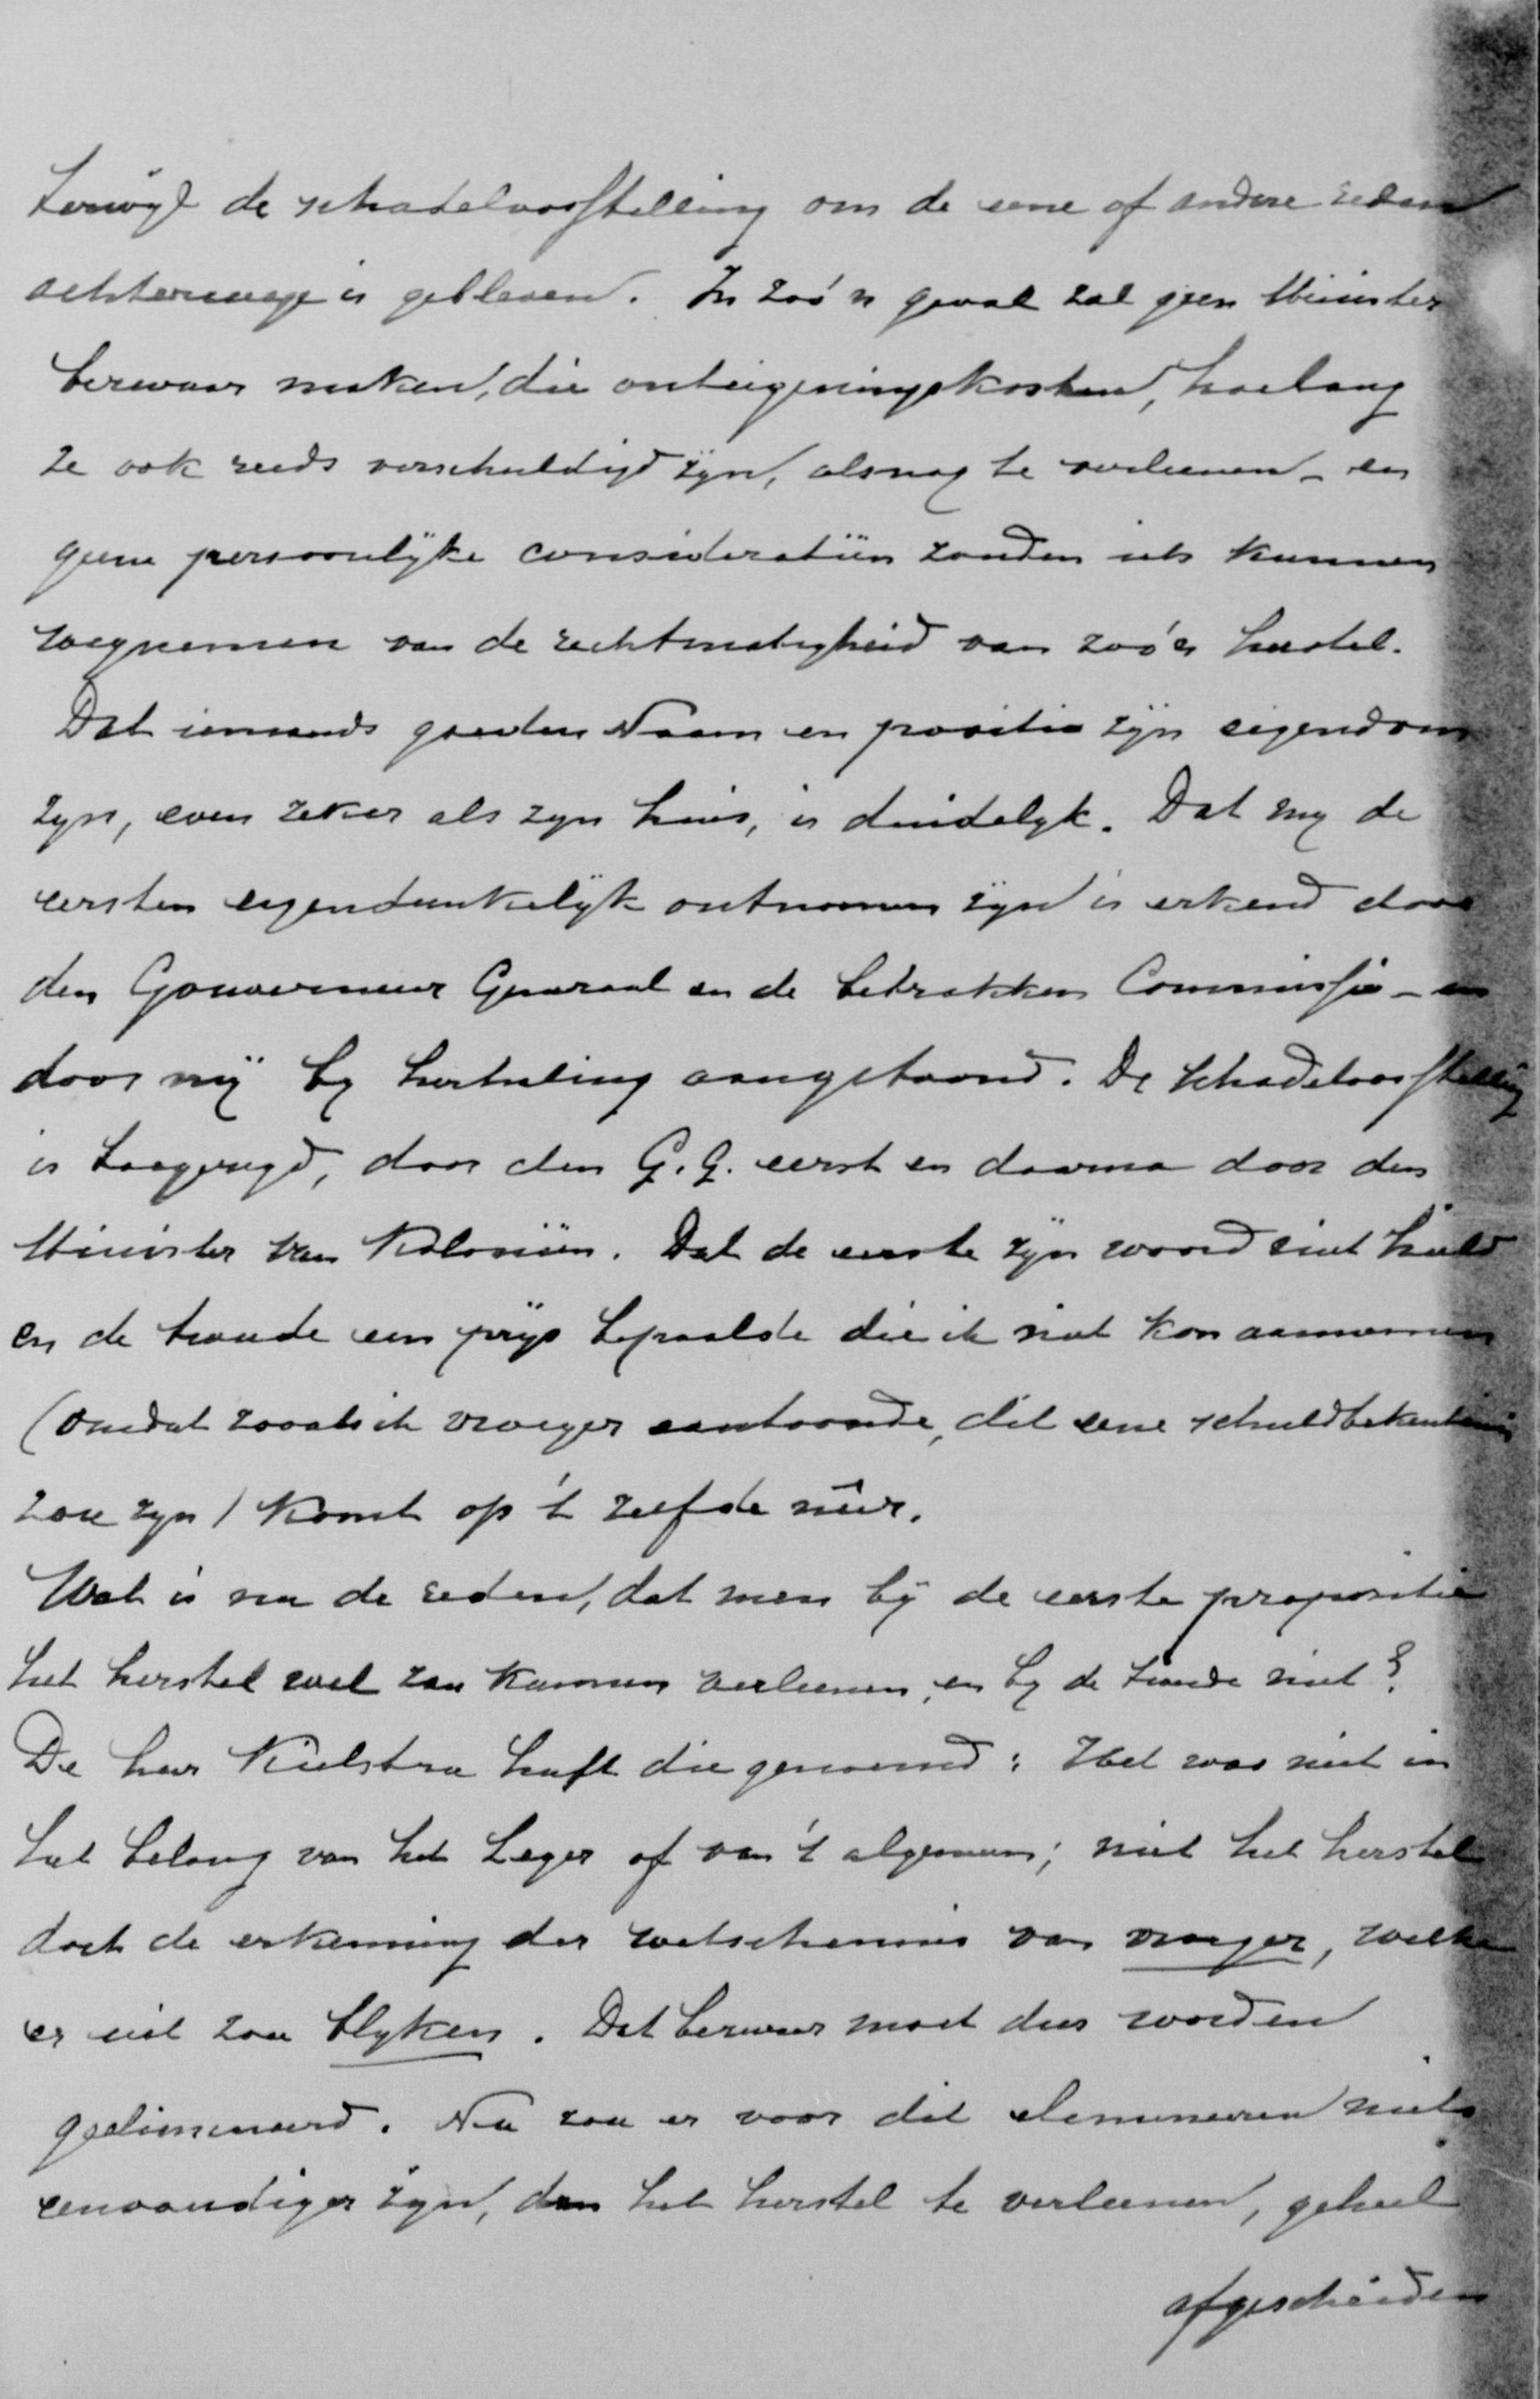 terwijl de schadeloosstelling om de eene of andere reden
achterwege is gebleven. In zoo'n geval zal geen Minister
bezwaar maken, die onteigeningskosten, hoelang
ze ook reeds verschuldigd zijn, alsnog te verleenen – en
geene persoonlijke consideratiën zouden iets kunnen
wegnemen van de rechtmatigheid van zoo'n herstel.
Dat iemands goeden Naam en positie zijn eigendom
zyn, even zeker als zyn huis, is duidelyk. Dat my de
eersten eigendunkelijk ontnomen zijn is erkend door
den Gouverneur Generaal en de betrokken Commissie – en
door mij by herhaling aangetoond. De schadeloosstelling
is toegezegd, door den G.G. eerst en daarna door den
Minister van Koloniën. Dat de eerste zijn woord niet hield
en de tweede een prijs bepaalde die ik niet kon aannemen
(omdat zooals ik vroeger aantoonde, dit eene schuldbekentenis
zou zyn) komt op 't zelfde neer.
Wat is nu de reden, dat men bij de eerste propositie
het herstel wel zou kunnen verleenen, en by de tweede niet?
De heer Kielstra heeft die genoemd: Het was niet in
het belang van het Leger of van 't algemeen; niet het herstel
doch de erkenning der wetschennis van vroeger, welke
er uit zou blyken. Dat bezwaar moet dus worden
geelimineerd. Nu zou er voor dit elimineeren niets
eenvoudiger zijn, dan het herstel te verleenen, geheel
afgescheiden